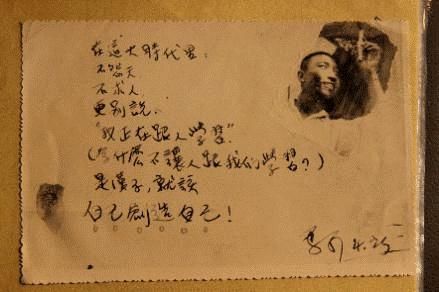 在這大時代裡，
不怨天
不求人，
更別說，
"我正在跟人學習"．
(為什麼不讓人跟我們學習？)
是漢子，就該
自己創造自己！